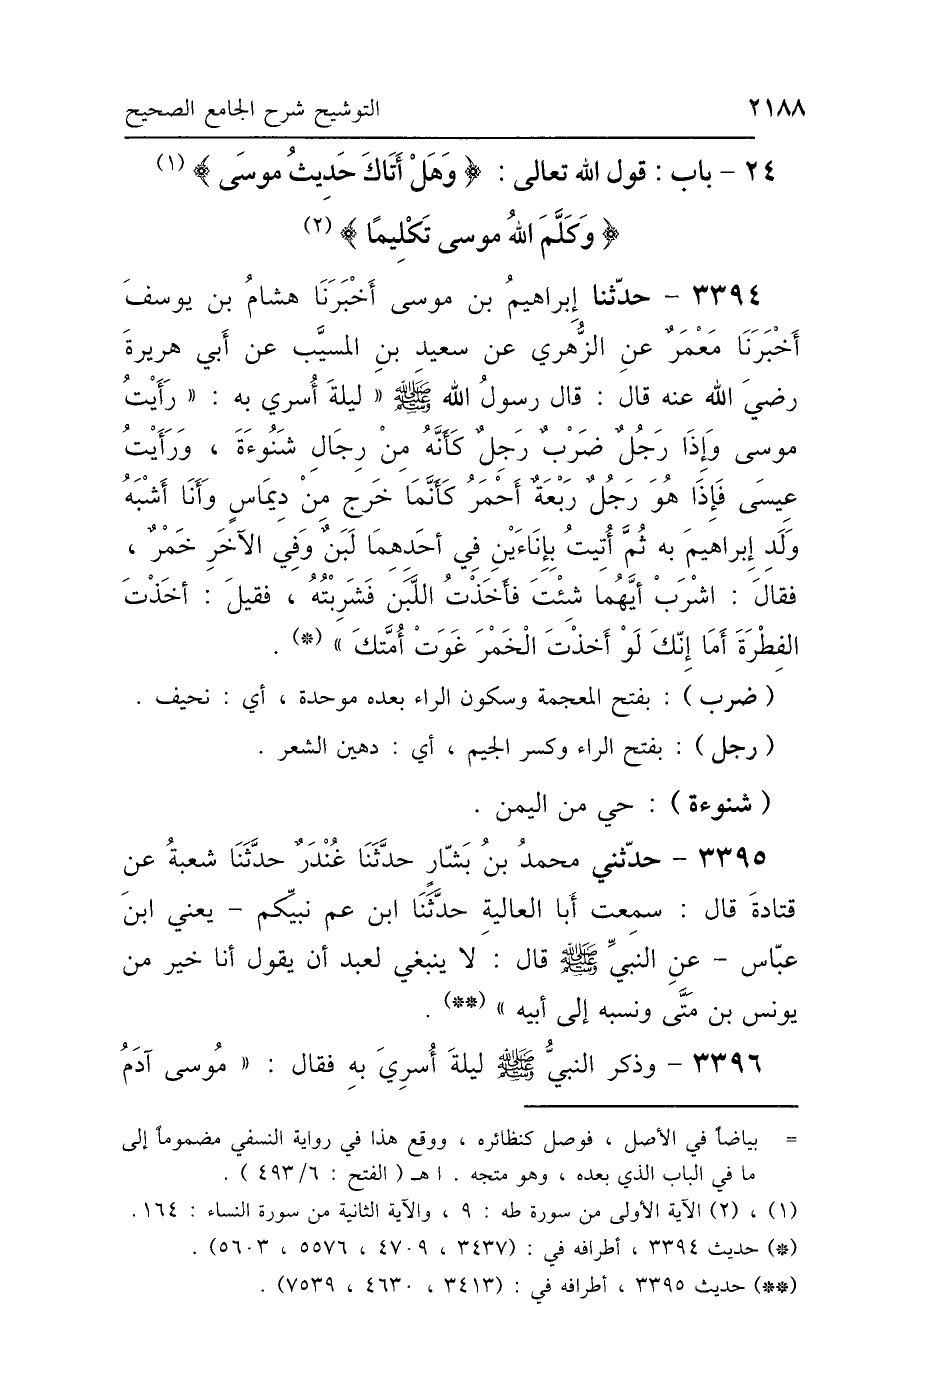 ٢١٨٨ التوشيح شرح الجامع الصحيح
٢٤ - باب : قول الله تعالى : ﴿ وَهَلْ أَتَاكَ حَدِيثُ موسَى ﴾ (١)
﴿ وَكَلَّمَ اللهُ موسى تَكْلِيمًا ﴾ (٢)
٣٣٩٤ - حدّثنا إبراهيمُ بن موسى أَخْبَرَنَا هشامُ بن يوسفَ
أَخْبَرَنَا مَعْمَرٌ عنِ الزُّهري عن سعيدِ بنِ المسيَّب عن أبي هريرةَ
رضيَ الله عنه قال : قال رسولُ الله ﷺ « ليلةَ أُسري به : « رَأَيْتُ
موسى وَإِذَا رَجُلٌ ضَرْبٌ رَجِلٌ كَأَنَّهُ مِنْ رِجَالِ شَنُوءَةَ ، وَرَأَيْتُ
عِيسَى فَإِذَا هُوَ رَجُلٌ رَبْعَةٌ أَحْمَرُ كَأَنَّمَا خَرج مِنْ دِيمَاسٍ وَأَنَا أَشْبَهُ
وَلَدِ إبراهيمَ به ثُمَّ أُتِيتُ بِإِنَاءَيْنِ فِي أحدِهِمَا لَبَنٌ وَفِي الآخَرِ خَمْرٌ ،
فقالَ : اشْرَبْ أيَّهُما شئْتَ فَأَخَذْتُ اللَّبَن فَشَرِبْتُهُ ، فقيلَ : أخَذْتَ
الفِطْرَةَ أَمَا إِنّكَ لَوْ أخذْتَ الْخَمْرَ غَوَتْ أُمَّتكَ » (*) .
( ضرب ) : بفتح المعجمة وسكون الراء بعده موحدة ، أي : نحيف .
( رجل ) : بفتح الراء وكسر الجيم ، أي : دهين الشعر .
( شنوءة ) : حي من اليمن .
٣٣٩٥ - حدّثني محمدُ بنُ بَشّارٍ حدَّثَنَا غُنْدَرٌ حدَّثَنَا شعبةُ عن
قتادةَ قال : سمعت أبا العاليةِ حدَّثَنَا ابن عم نبيِّكم - يعني ابنَ
عبّاس - عنِ النبيِّ ﷺ قال : لا ينبغي لعبد أن يقول أنا خير من
يونس بن مَتَّى ونسبه إلى أبيه » (**) .
٣٣٩٦ - وذكر النبيُّ ﷺ ليلةَ أُسرِيَ بهِ فقال : « مُوسى آدَمُ
= بياضاً في الأصل ، فوصل كنظائره ، ووقع هذا في رواية النسفي مضموماً إلى
ما في الباب الذي بعده ، وهو متجه . ا هـ ( الفتح : ٤٩٣/٦ ) .
(١) ، (٢) الآية الأولى من سورة طه : ٩ ، والآية الثانية من سورة النساء : ١٦٤ .
(*) حديث ٣٣٩٤ ، أطرافه في : (٣٤٣٧ ، ٤٧٠٩ ، ٥٥٧٦ ، ٥٦٠٣) .
(**) حديث ٣٣٩٥ ، أطرافه في : (٣٤١٣ ، ٤٦٣٠ ، ٧٥٣٩) .